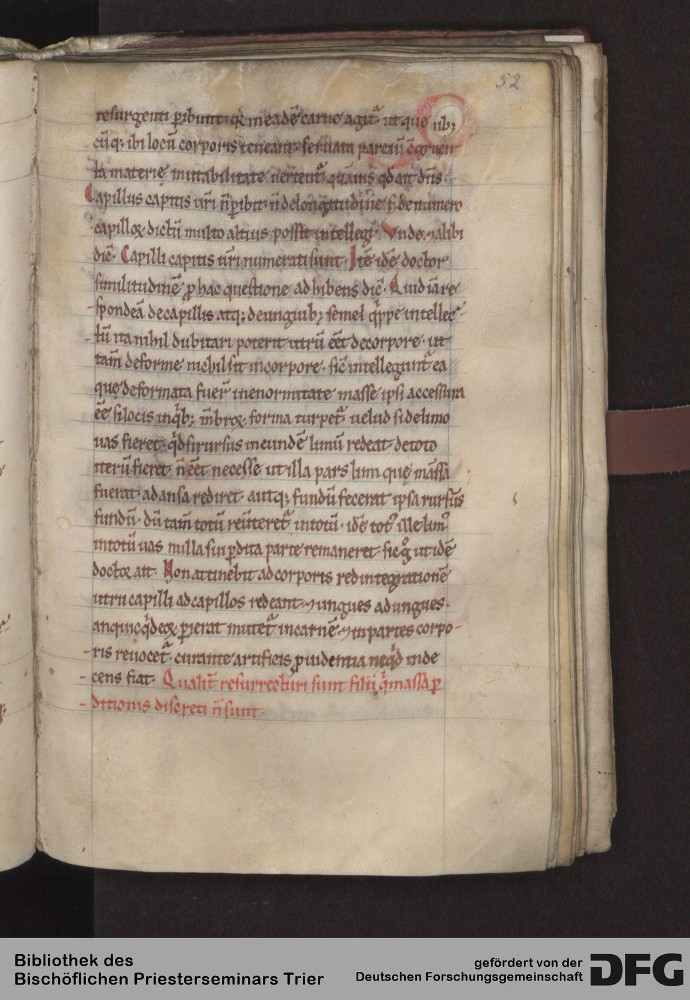 52
resurgenti ꝑibunt qd̄ in eadē carne agit᷑ ut que ubi
cūq; ibi locū corporis teneant seruata partiū ↄgruen
ta materię mutabilitate uertent᷑ quāuis qd ait dn̄s.
Capillus capitis ur̄i n̄ ꝑibit. n̄ de longitudine sꝫ de numero
capilloꝝ dictū multo altius possit intellegi. Vnde ⁊ alibi
dic̄. Capilli capitis ur̄i numerati sunt. Itē idē doctor
similitudinē ꝓ hac questione adhibens dic̄. Quid iā re
spondeā de capillis atq; de unguib; semel q̄ppe intellec
tū ita nihil dubitari poterit utrū eēt de corpore. ut
tam̄ deforme nichil sit in corpore. sic intellegunt᷑ ea
que deformata fuer̄ in enormitate masse ipsi accessura
eē si locis in q̇b; m̄broꝝ forma turpet᷑ uelud si de limo
uas fieret. qd̄ si rursus in eundē limū redeat de toto
iterū fieret n̄ eēt necesse ut illa pars limi que in āsa
fuerat ad ansā rediret. aut q; fundū fecerat ipsa rursūs
fundū. dū tam̄ totū reūteret᷑ in totū. idē totꝰ ille limꝰ
in totū uas nulla sui ꝑdita parte remaneret. sic ḡ ut idē
doctor ait. Non attinebit ad corporis redintegrationē
utrū capilli ad capillos redeant. ⁊ ungues ad ungues.
an quicq̇d eoꝝ ꝑierat mutet᷑ in carnē ⁊ in partes corpo-
ris reuocet᷑. curante artificis ꝓuidentia ne q̇d inde
cens fiat. Qualit̄ resurrecturi sunt filii q̇ massa ꝑ
ditionis discreti n̄ sunt.
Bibliothek des
Bischöflichen Priesterseminars Trier
gefördert von der
Deutschen Forschungsgemeinschaft
DFG